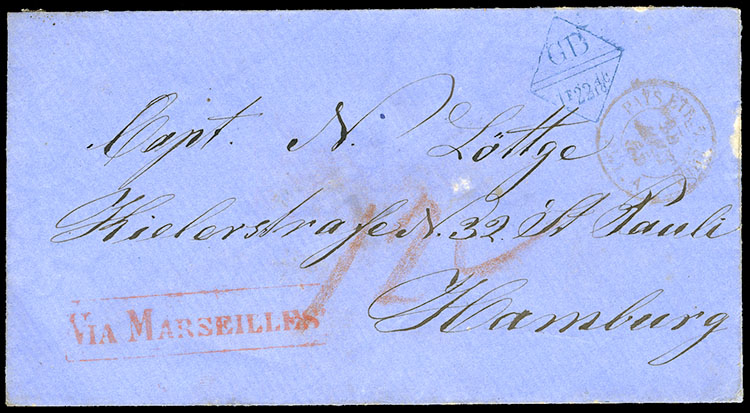 GB
1F 22 4/10
PAYS ETR.
Capt. N. Löttge
Kielerstraße N. 32. St Pauli
Hamburg
VIA MARSEILLES
12